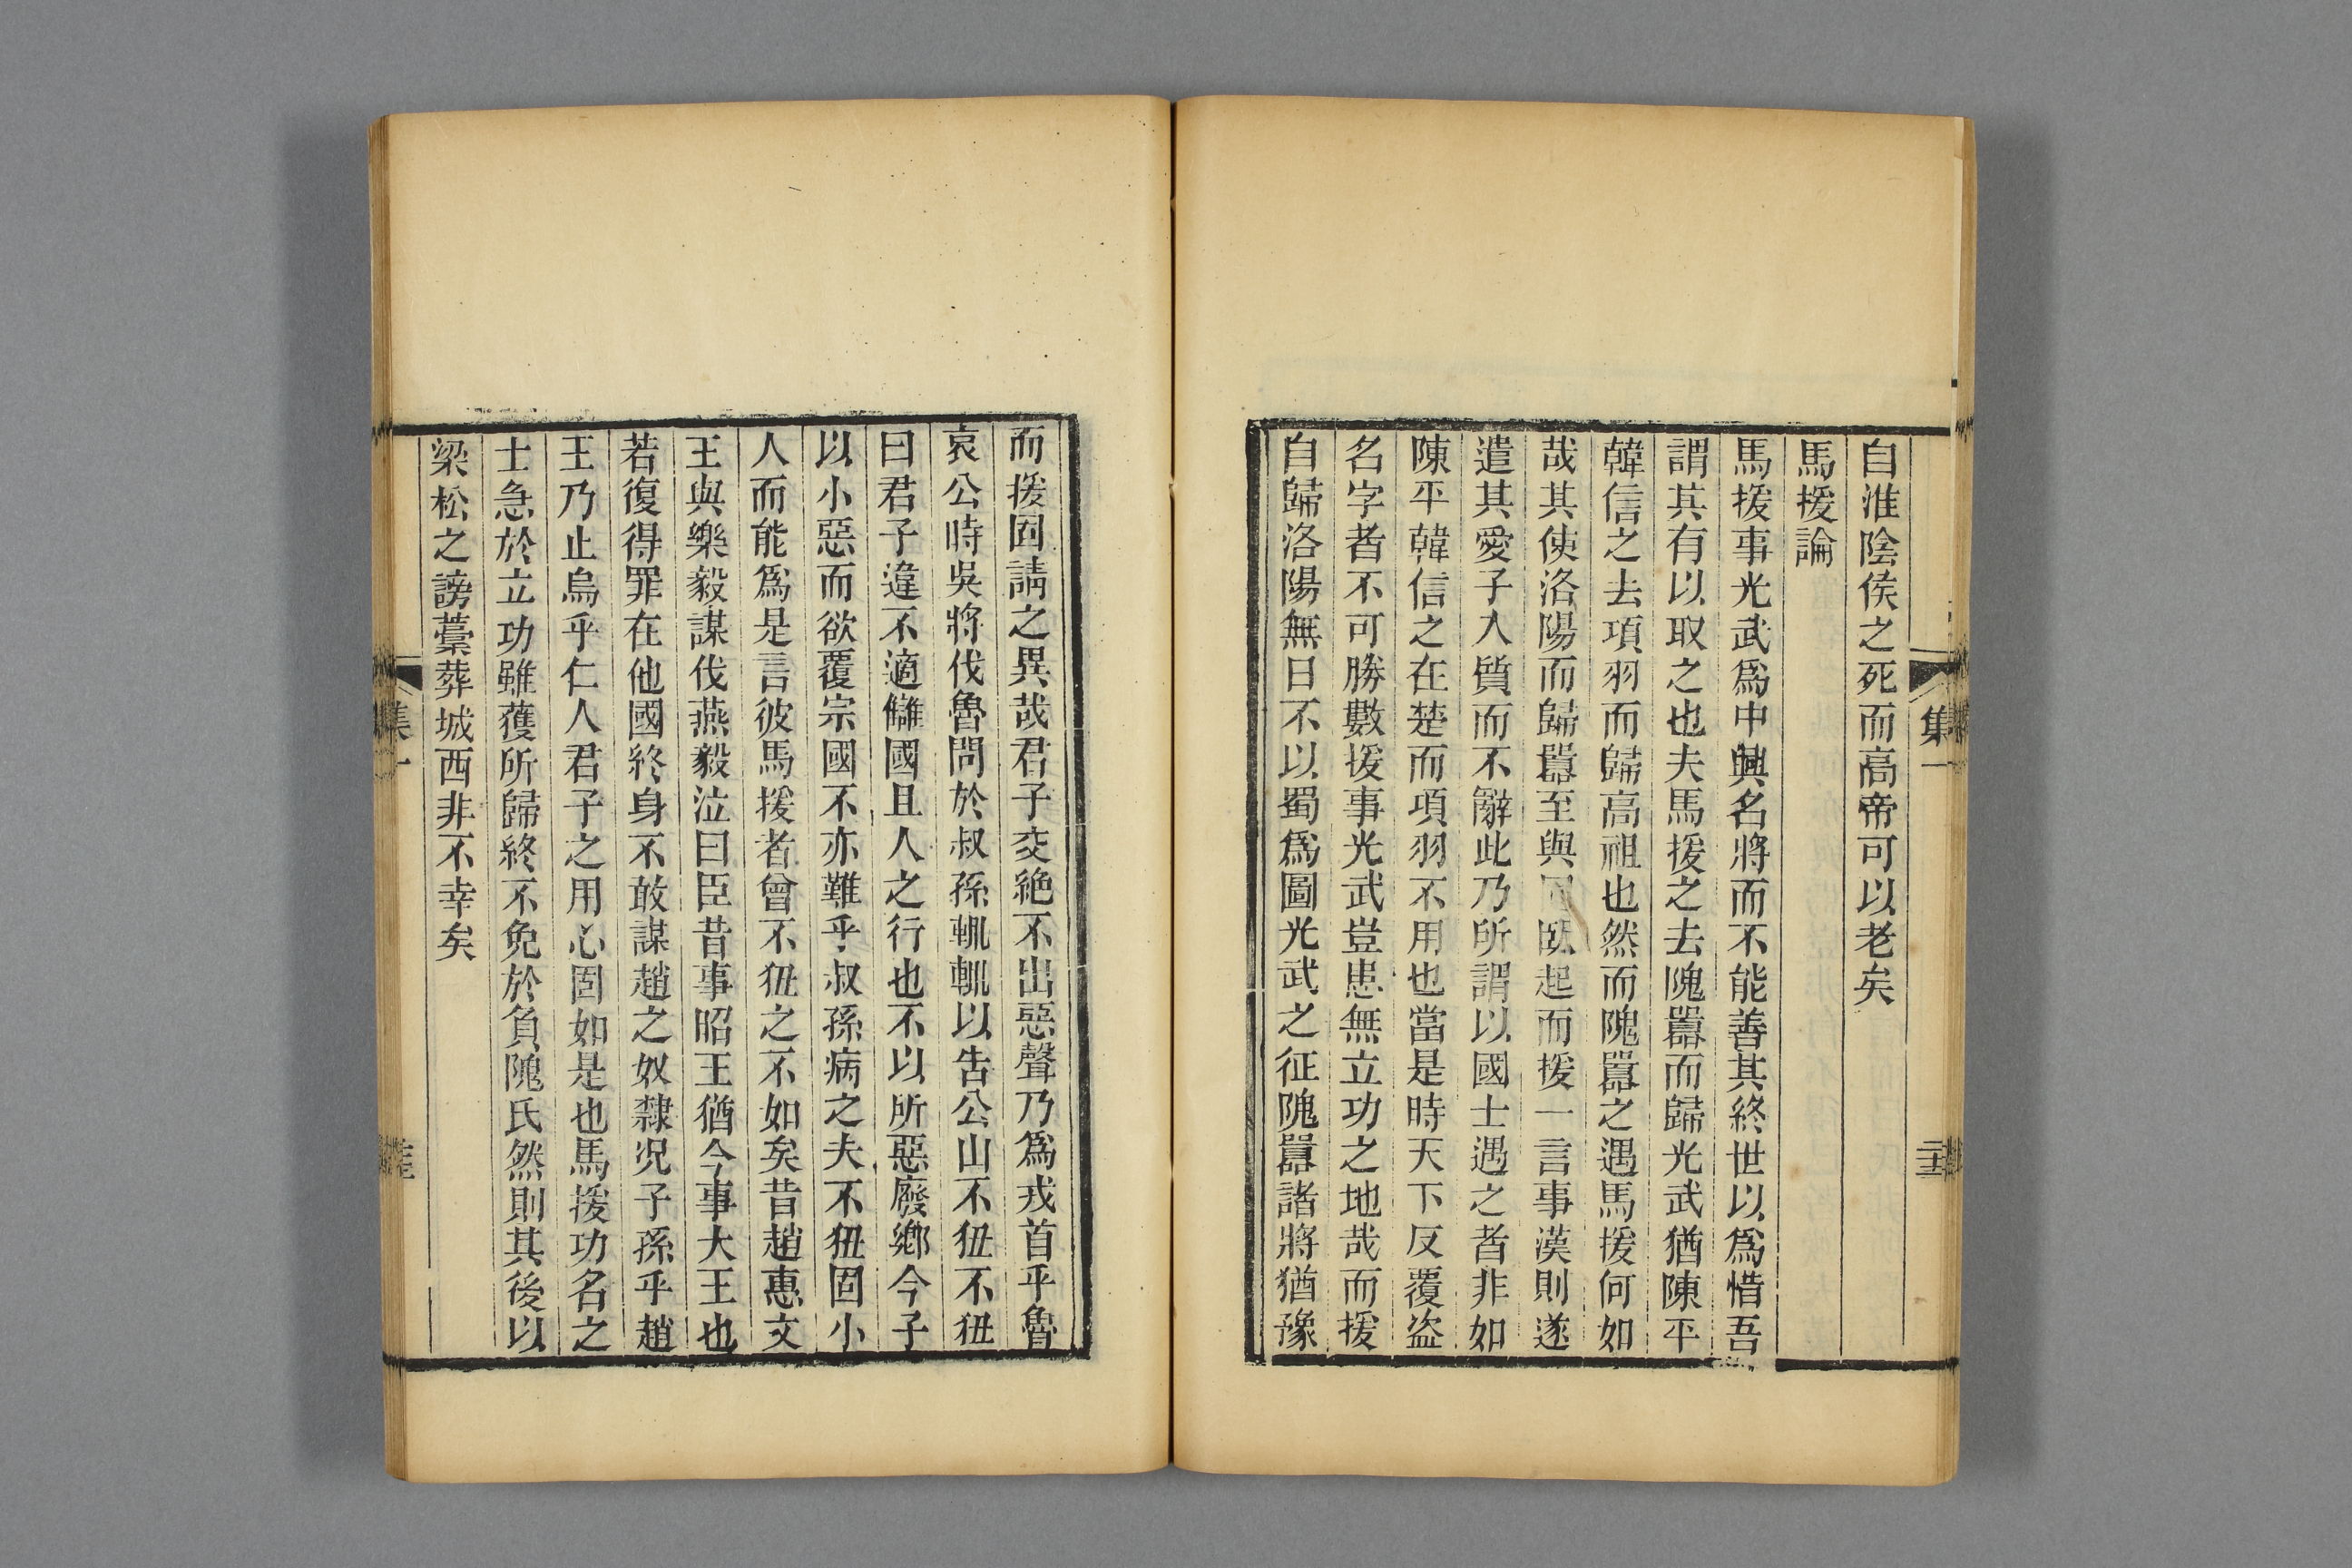 自淮陰侯之死而高帝可以老矣
馬援論
馬援事光武爲中興名將而不能善其終世以爲惜吾
謂其有以取之也夫馬援之去隗囂而歸光武猶陳平
韓信之去項羽而歸高祖也然而隗囂之遇馬援何如
哉其使洛陽而歸囂至與同臥起而援一言事漢則遂
遣其愛子入質而不辭此乃所謂以國士遇之者非如
陳平韓信之在楚而項羽不用也當是時天下反覆盜
名字者不可勝數援事光武豈患無立功之地哉而援
自歸洛陽無日不以蜀爲圖光武之征隗囂諸將猶豫
集一
而援固請之異哉君子交絶不出惡聲乃爲戎首乎魯
哀公時吳將伐魯問於叔孫輒輒以告公山不狃不狃
曰君子違不適讎國且人之行也不以所惡廢鄉今子
以小惡而欲覆宗國不亦難乎叔孫病之夫不狃固小
人而能爲是言彼馬援者曾不狃之不如矣昔趙惠文
王與樂毅謀伐燕毅泣曰臣昔事昭王猶今事大王也
若復得罪在他國終身不敢謀趙之奴隸况子孫乎趙
王乃止烏乎仁人君子之用心固如是也馬援功名之
士急於立功雖獲所歸終不免於負隗氏然則其後以
梁松之謗藁葬城西非不幸矣
集一